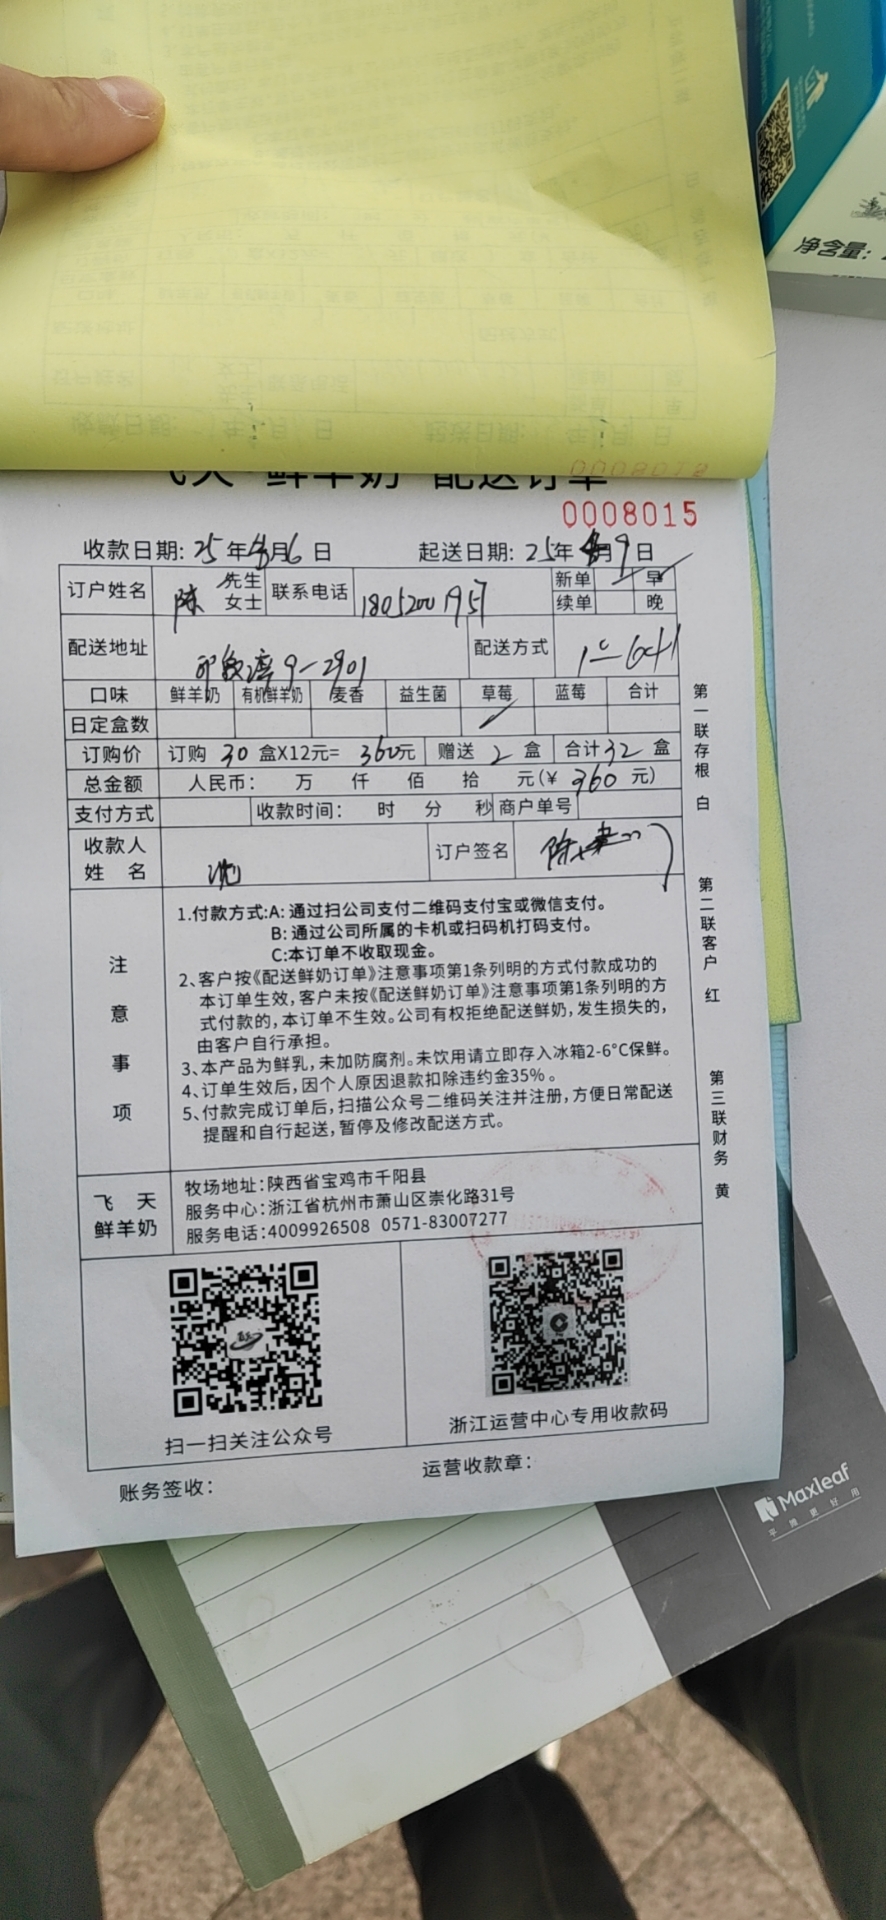 净含量:
飞天·鲜羊奶 配送订单
0008015
收款日期: 25 年 月 6 日 起送日期: 25 年 月 9 日
订户姓名 陈 先生 女士 联系电话 新单 早
续单 晚
配送地址 9-2901 配送方式
口味 鲜羊奶 有机鲜羊奶 麦香 益生菌 草莓 蓝莓 合计
日定盒数
订购价 订购 30 盒X12元= 360元 赠送 2 盒 合计 32 盒
总金额 人民币: 万 仟 佰 拾 元(¥ 360 元)
支付方式 收款时间: 时 分 秒 商户单号
收款人 姓名 沈 订户签名 陈
注意事项
1.付款方式:A: 通过扫公司支付二维码支付宝或微信支付。
B: 通过公司所属的卡机或扫码机打码支付。
C:本订单不收取现金。
2、客户按《配送鲜奶订单》注意事项第1条列明的方式付款成功的
本订单生效,客户未按《配送鲜奶订单》注意事项第1条列明的方
式付款的,本订单不生效。公司有权拒绝配送鲜奶,发生损失的,
由客户自行承担。
3、本产品为鲜乳,未加防腐剂。未饮用请立即存入冰箱2-6°C保鲜。
4、订单生效后,因个人原因退款扣除违约金35%。
5、付款完成订单后,扫描公众号二维码关注并注册,方便日常配送
提醒和自行起送,暂停及修改配送方式。
飞天
鲜羊奶
牧场地址:陕西省宝鸡市千阳县
服务中心:浙江省杭州市萧山区崇化路31号
服务电话:4009926508 0571-83007277
扫一扫关注公众号
浙江运营中心专用收款码
账务签收:
运营收款章:
第一联存根 白
第二联客户 红
第三联财务 黄
Maxleaf